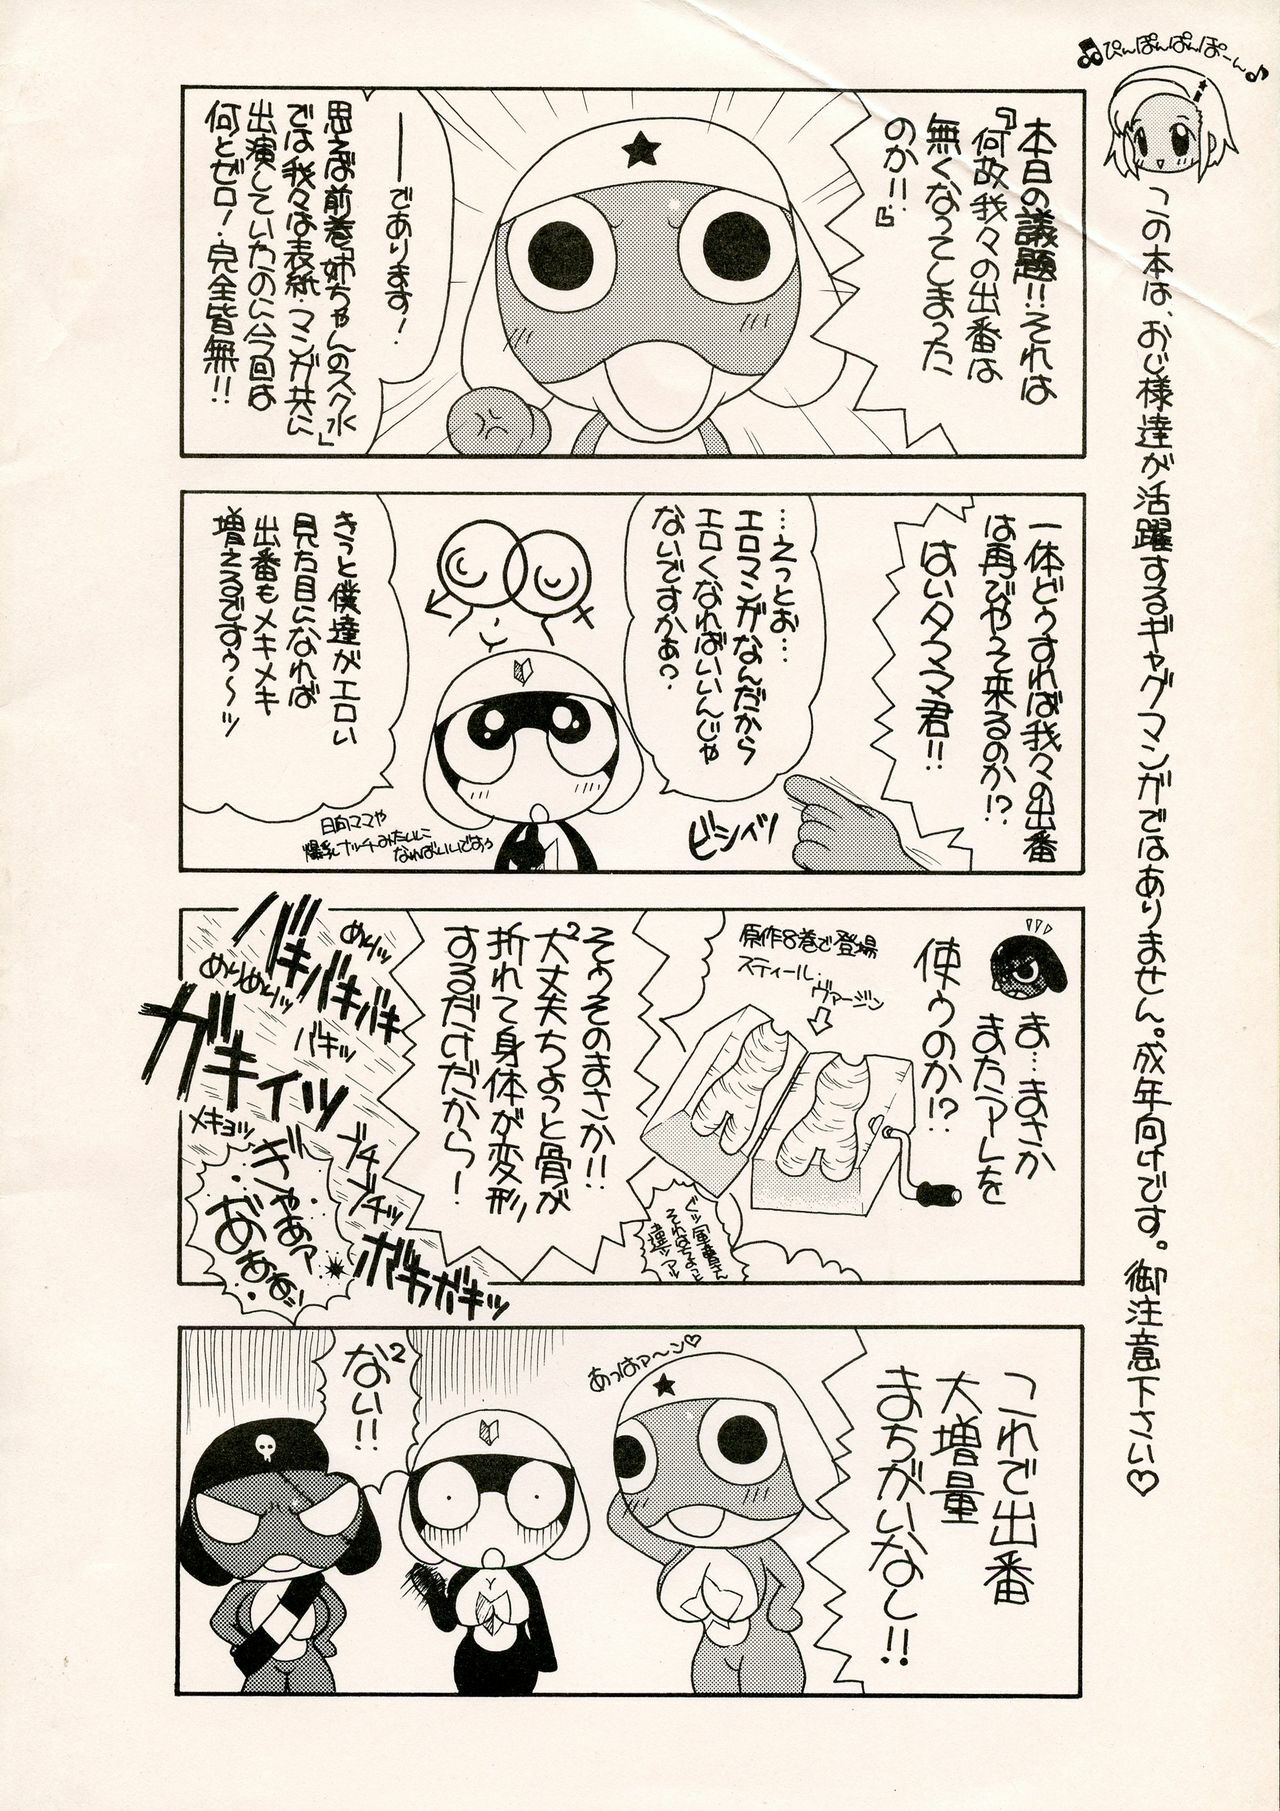 ♫ぴんぽんぱんぽーん♪
この本は、おじ様達が活躍するギャグマンガではありません。成年向けです。御注意下さい♡
本日の議題!!それは
『何故我々の出番は
無くなってしまった
のか!!』
――であります!
思えば前巻「姉ちゃんのスク水」
では我々は表紙・マンガ共に
出演していたのに今回は
何とゼロ!完全皆無!!
一体どうすれば我々の出番
は再びやって来るのか!?
はいタママ君!!
ビシィッ
…えっとぉ…
エロマンガなんだから
エロくなればいいんじゃ
ないですかぁ?
きっと僕達がエロい
見た目になれば
出番もメキメキ
増えるですぅ〜ッ
日向ママや
爆乳ナッチーみたいに
なればいいですぅ
ま…まさか
またアレを
使うのか!?
原作8巻で登場
スティール・
ヴァージン
ぐッ軍曹さん
それはちょっと
違ッアッ
そぅそのまさか!!
大²丈夫ちょっと骨が
折れて身体が変形
するだけだから!
バキバキバキ
めりッ
めりめりッ
バキッ
ガキィッ
メキョッ
ブチ
ブチッ
ボキガキッ
ぎゃあァ
あぁぁ!!
これで出番
大増量
まちがいなし!!
あっはァ〜ン♡
ない²!!